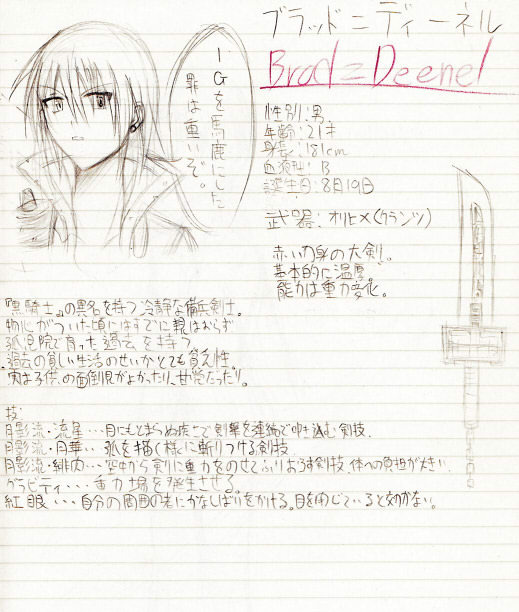 ブラッド=ディーネル
Brad=Deenel
1Gを馬鹿にした
罪は重いぞ。
性別:男
年齢:21才
身長:181cm
血液型:B
誕生日:8月19日
武器:オリヒメ(クランツ)
赤い刀身の大剣。
基本的に温厚。
能力は重力変化。
『黒騎士』の異名を持つ冷静な傭兵剣士。
物心がついた頃にはすでに親はおらず
孤児院で育った過去を持つ。
過去の貧しい生活のせいかとても貧乏性。
実は子供の面倒見がよかったり、甘党だったり。
技:
月影流・流星・・・目にもとまらぬ疾さで剣撃を連続で叩き込む剣技。
月影流・月華・・・弧を描く様に斬りつける剣技。
月影流・緋肉・・・空中から剣に重力をのせてふりおろす剣技、体への負担が大きい。
グラビティ・・・重力場を発生させる。
紅眼・・・自分の周囲の者にかなしばりをかける。目を閉じていると効かない。